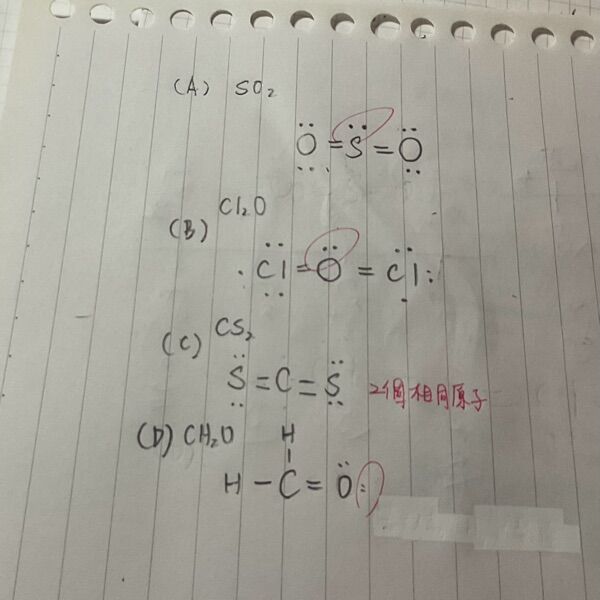 (A) SO₂
Ö=S̈=Ö
(B) Cl₂O
Cl=Ö=Cl:
(C) CS₂
S=C=S 2個相同原子
(D) CH₂O
H
H-C=Ö: